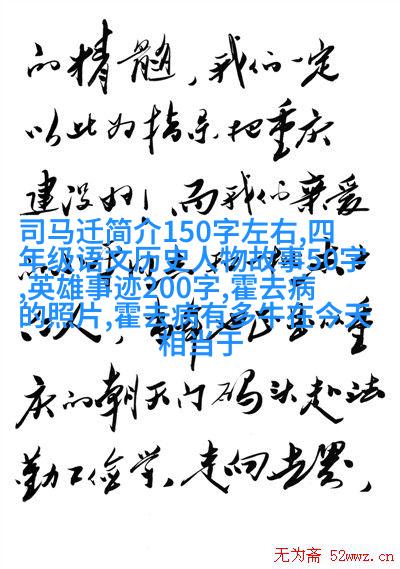 的精髓，我们一定
以此为指导把重庆
建设好！而我们亲爱
司马迁简介150字左右,四
年级语文历史人物故事50字
,英雄事迹200字,霍去病
的照片,霍去病有多牛在今天
相当于
庆的朝天门码头赴法
勤工俭学，走向世界，
无为斋 52wwz.cn